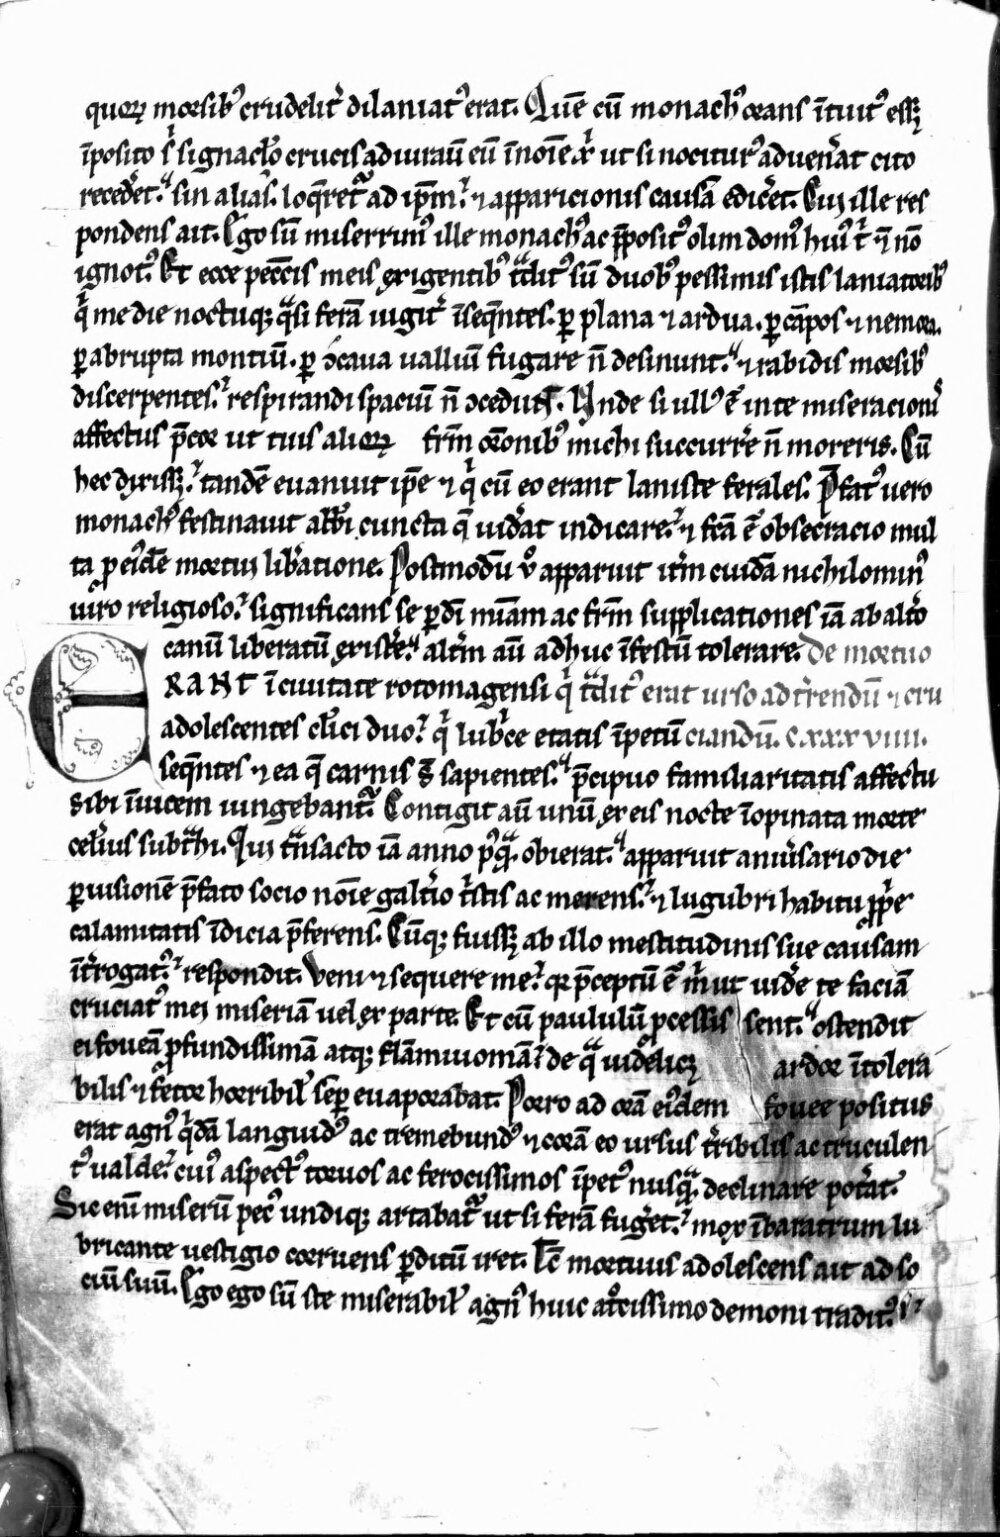 quoꝝ morsibꝰ crudelit᷑ dilaniatꝰ erat. Quē cū monachꝰ orans ītuitꝰ essꝫ
īposito sͥ signac̄lo crucis adiurauit eū ī noīe xͥ ut si nociturꝰ aduen̄at cito
recedet. sin alias. loq̄retᷓ ad ip̄m. ⁊ apparicionis causā edic̄et. Cui ille res
pondens ait. Ego sū miserrimꝰ ille monachꝰ ac p̄positꝰ olim domꝰ huiꝰ tͥ ⁊ n̄ nō
ignotꝰ. Et ecce pecc̄is meis exigentibꝰ tᷓditꝰ sū duobꝰ pessimis istis laniatoribꝰ
qͥ me die noctuqꝫ qᷓsi ferā uigit᷑ īseq̄ntes. ꝑ plana ⁊ ardua. ꝑ cāpos ⁊ nemora.
ꝑ abrupta montiū. ꝑ ↄcaua ualliū fugare n̄ desinunt. ⁊ rabidis morsibꝰ
discerpentes. respirandi spaciū n̄ ↄcedut̄. Unde si ullꝰ ē in te miseracionͥ
affectus p̄cor ut tuis alioꝝ fr̄m or̄onibꝰ michi succurre n̄ moreris. Cū
hec dixissꝫ. tandē euanuit ip̄e ⁊ qͥ cū eo erant laniste ferales. P̄fatꝰ uero
monachꝰ festinauit abb̄i cuncta q̄ uid̄at indicare. ⁊ fc̄a ē obsecracio mul
ta ꝓ eiꝰdē mortui lib̄atione. Postmodū uͦ apparuit it̄m cuidā nichilominꝰ
uiro religioso. significans se ꝑ dī mīam ac fr̄m supplicationes iā ab alt̄o
canū liberatū existe. alt̄m aū adhuc īfestū tolerare. De mortuo
ERANT ī ciuitate rotomagensi qͥ tᷓditꝰ erat urso ad t̄rendū ⁊ cru
adolescentes cl̄ici duo. qͥ lubͥce etatis īpetū ciandū. c.xxx viiii.
seq̄ntes ⁊ ea q̄ carnis s̄ sapientes. p̄cipuo familiaritatis affectu
sibi īuicem iungebantᷓ. Contigit aū unū ex eis nocte īopinata morte
cel̄ius subtᷓhi. Qui tᷓnsacto iā anno pꝰqᷓ obierat. apparuit aniu̅sario die
ꝑ uisionē p̄fato socio noīe galt̄io tͥstis ac merens. ⁊ lugubri habitu ꝓpͥe
calamitatis īdicia p̄ferens. Cūqꝫ fuissꝫ ab illo mestitudinis sue causam
īt̄rogatꝰ. respondit. Veni ⁊ sequere me. qꝛ p̄ceptū ē mͥ ut uid̄e te faciā
cruciatꝰ mei miseriā uel ex parte. Et cū paululū ꝓcessis sent. ostendit
ei foueā ꝓfundissimā atqꝫ flāmiuomā. de qᷓ uid̄elicꝫ ardor ītolera
bilis ⁊ fetor horribil̓ sēꝑ euaporabat. Porro ad orā eiꝰdem fouee positus
erat agnꝰ qͥdā languidꝰ ac tremebundꝰ ⁊ corā eo ursus t̄ribilis ac truculen
tꝰ ualde. cuiꝰ aspectꝰ toruos ac ferocissimos īpetꝰ nusqᷓ declinare pot̄at.
Sic enī miserū pecꝰ undiqꝫ artabatᷓ ut si ferā fug̓et. mox ī baratrum lu
bricante uestigio corruens ꝑditū iret. Tc̄ mortuus adolescens ait ad so
ciū suū. Ego ego sū iste miserabil̓ agnꝰ huic atͦcissimo demoni traditꝰ.